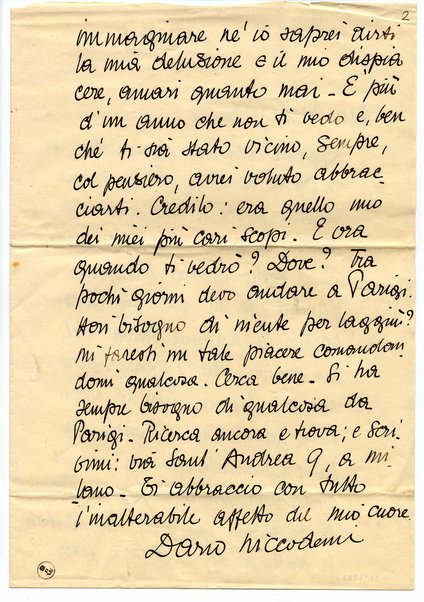 2
immaginare nè io saprei dirti
la mia delusione e il mio dispia
cere, amari quanto mai - E più
d'un anno che non ti vedo e, ben
chè ti sia stato vicino, sempre,
col pensiero, avrei voluto abbrac-
ciarti. Credilo: era quello uno
dei miei più cari scopi. E ora
quando ti vedrò? Dove? Tra
pochi giorni devo andare a Parigi.
Hai bisogno di niente per laggiù?
Mi faresti un tale piacere comandan-
domi qualcosa. Cerca bene - Si ha
sempre bisogno di qualcosa da
Parigi - Ricerca ancora e trova; e scri-
vimi: via Sant'Andrea 9, a Mi-
lano - Ti abbraccio con tutto
l'inalterabile affetto del mio cuore.
Dario Niccodemi